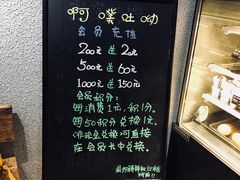 啊噗吐呦
会员充值
200元送20元
500元送60元
1000元送150元
会员积分：
每消费1元，积1分。
每50积分兑换1元。
(非现金兑换)可直接
在会员卡中兑换。